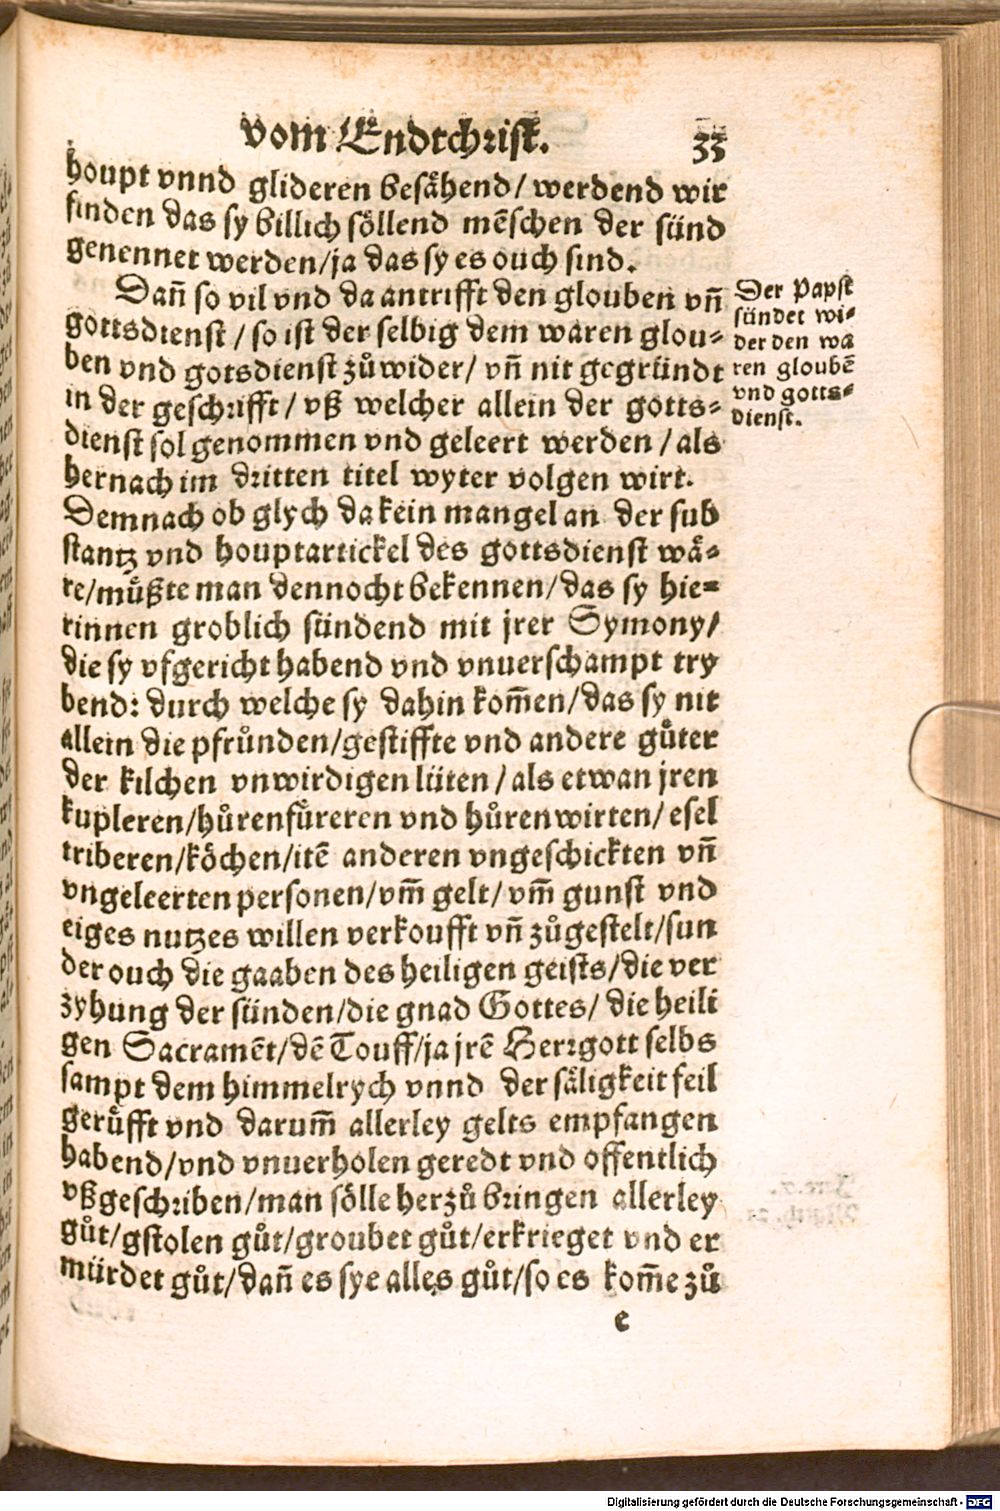 vom Endtchrist. 33
houpt vnnd glideren besähend/ werdend wir
finden das sy billich söllend mẽschen der sünd
genennet werden/ja das sy es ouch sind.
Dañ so vil vnd da antrifft den glouben vñ
gottsdienst / so ist der selbig dem waren glou⸗
ben vnd gotsdienst zůwider/ vñ nit gegründt
in der geschrifft/ vß welcher allein der gotts⸗
dienst sol genommen vnd geleert werden / als
hernach im dritten titel wyter volgen wirt.
Der Papst
sündet wi⸗
der den wa
ren gloubẽ
vnd gotts⸗
dienst.
Demnach ob glych da kein mangel an der sub
stantz vnd houptartickel des gottsdienst wä⸗
re/můßte man dennocht bekennen/das sy hie⸗
rinnen groblich sündend mit jrer Symony/
die sy vfgericht habend vnd vnuerschampt try
bend: durch welche sy dahin kom̃en/das sy nit
allein die pfrůnden/gestiffte vnd andere gůter
der kilchen vnwirdigen lüten / als etwan jren
kupleren/hůrenfůreren vnd hůrenwirten/ esel
triberen/köchen/itẽ anderen vngeschickten vñ
vngeleerten personen/vm̃ gelt/ vm̃ gunst vnd
eiges nutzes willen verkoufft vñ zůgestelt/sun
der ouch die gaaben des heiligen geists/die ver
zyhung der sünden/die gnad Gottes/ die heili
gen Sacramẽt/dẽ Touff/ja jrẽ Herrgott selbs
sampt dem himmelrych vnnd der säligkeit feil
gerůfft vnd darum̃ allerley gelts empfangen
habend/vnd vnuerholen geredt vnd offentlich
vßgeschriben/man sölle herzů bringen allerley
gůt/gstolen gůt/groubet gůt/erkrieget vnd er
mürdet gůt/dañ es sye alles gůt/so es kom̃e zů
e
Digitalisierung gefördert durch die Deutsche Forschungsgemeinschaft - DFG